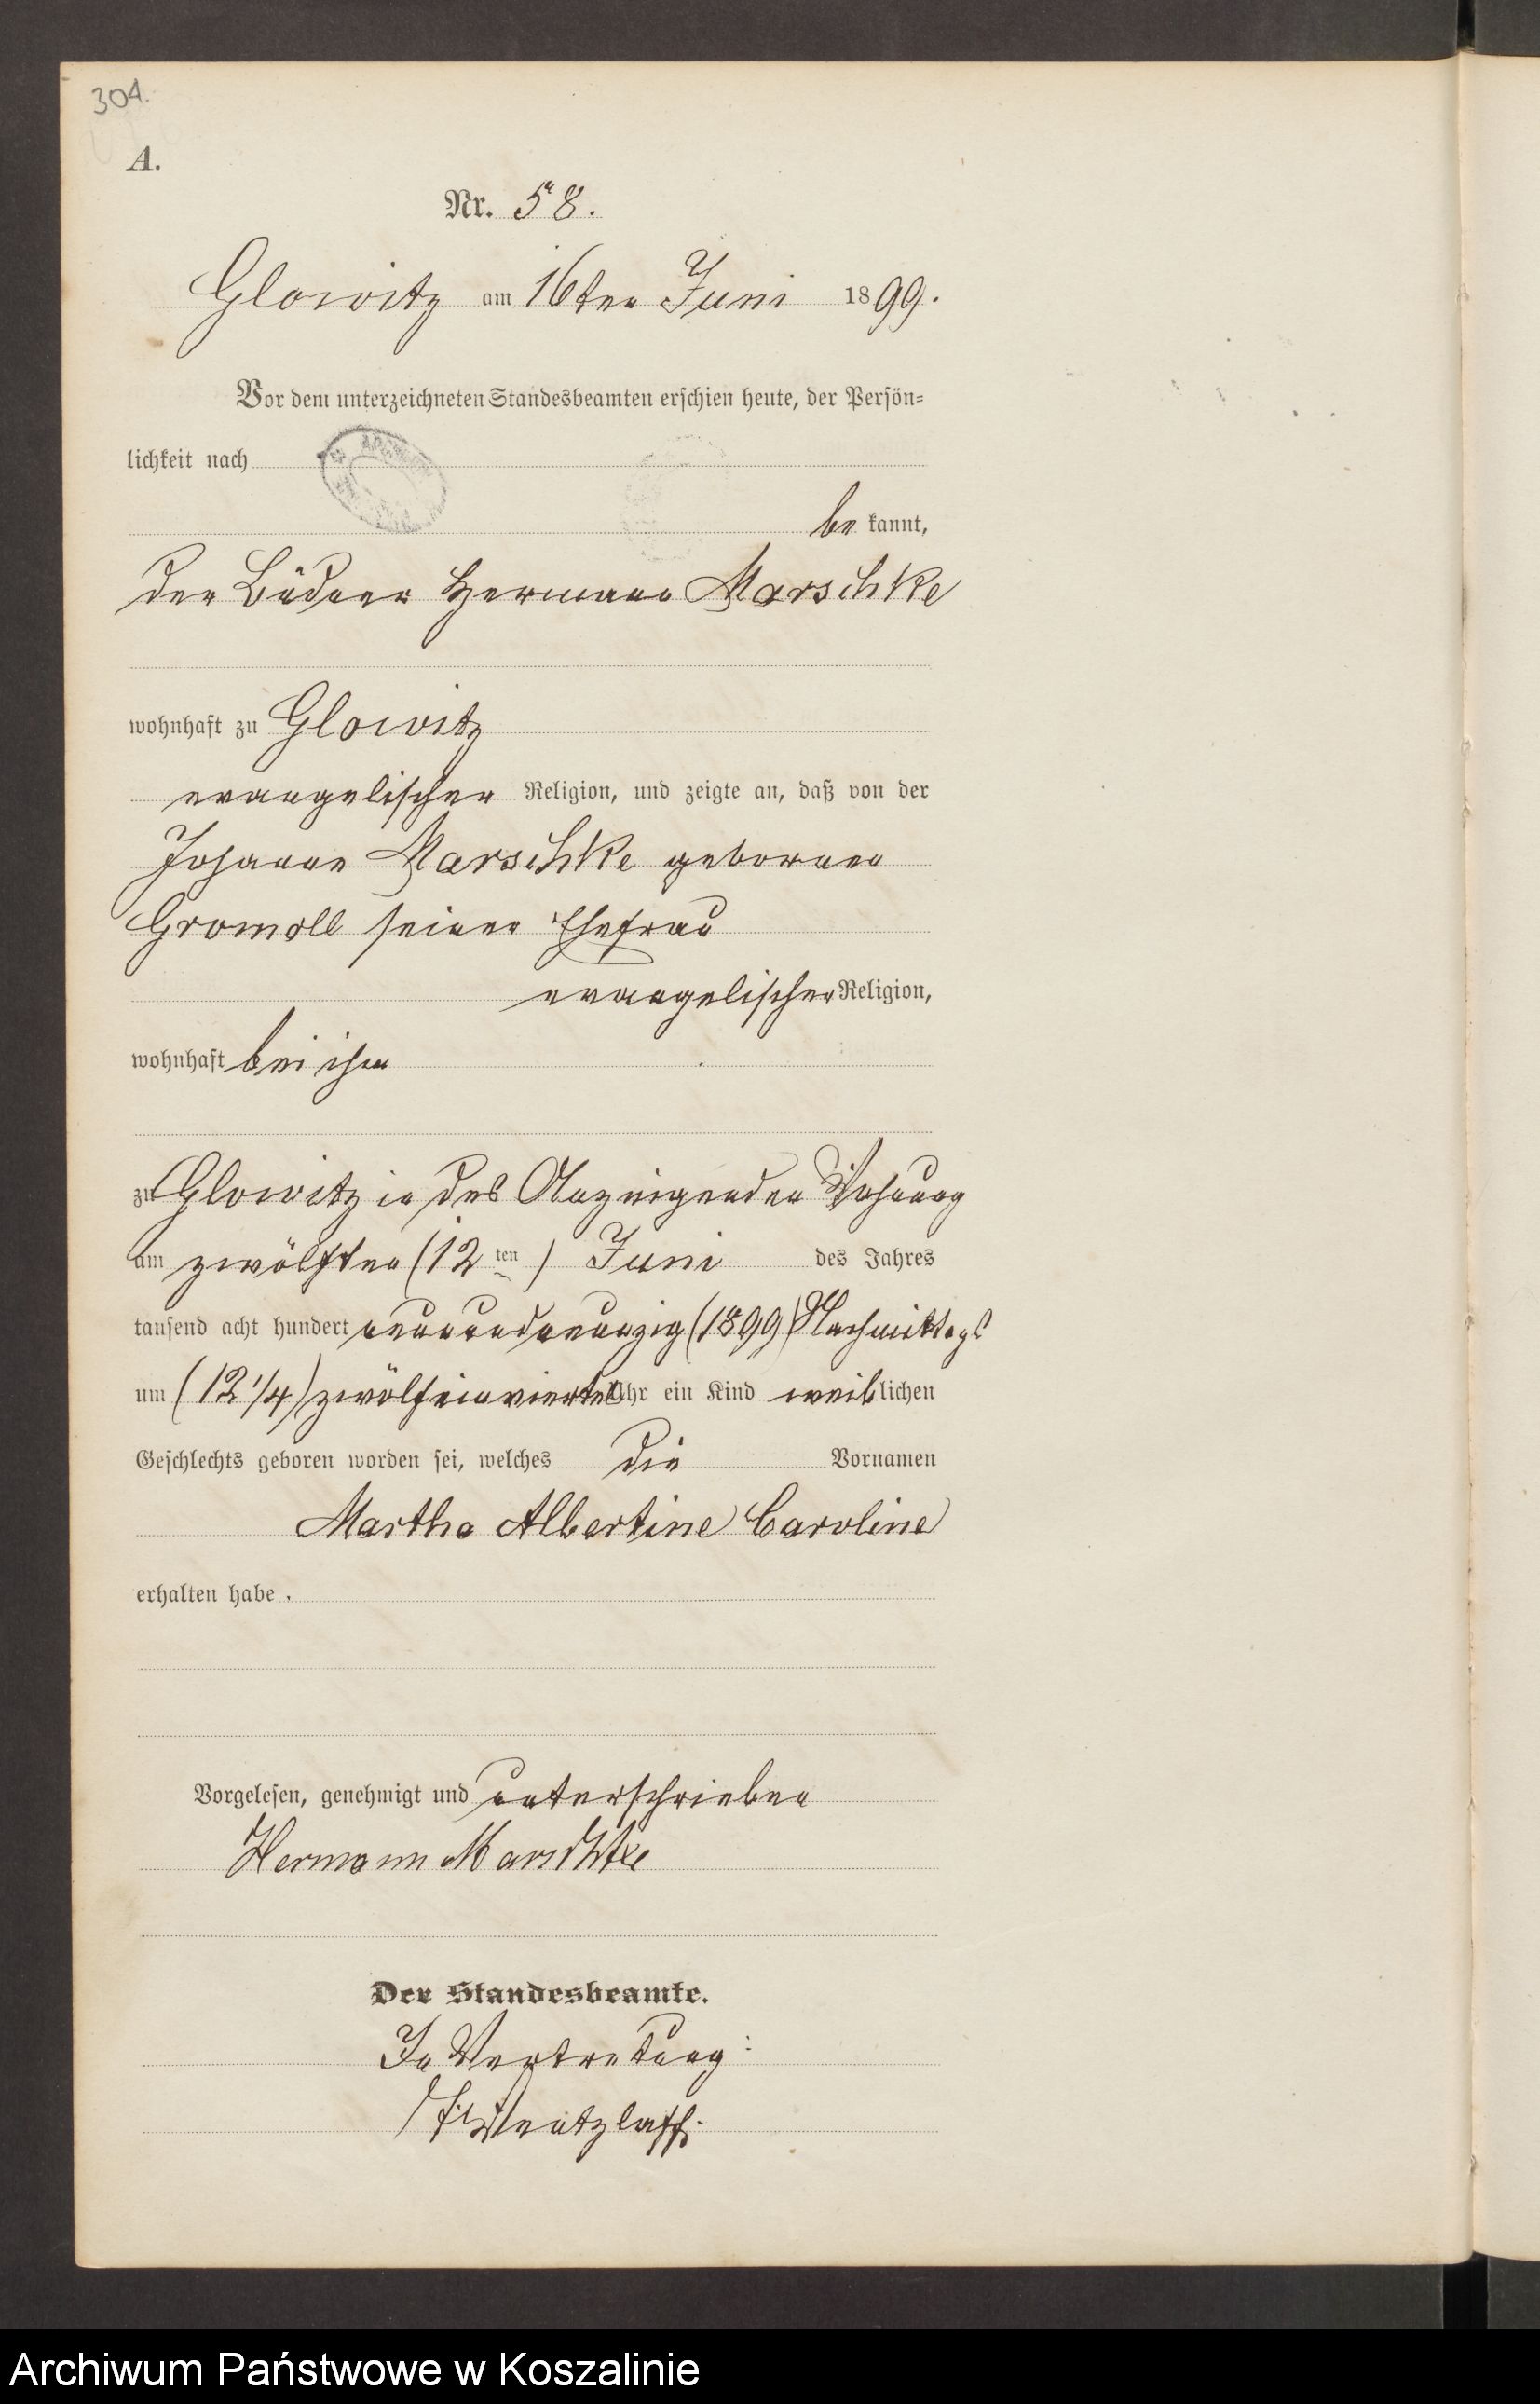 304.
A.
Nr. 58.
Glowitz am 16ten Juni 1899.
Vor dem unterzeichneten Standesbeamten erschien heute, der Persön-
lichkeit nach
be kannt,
der Büdner Hermann Marschke
wohnhaft zu Glowitz
evangelischer Religion, und zeigte an, daß von der
Johanne Marschke geborenen
Gromoll seiner Ehefrau
evangelischer Religion,
wohnhaft bei ihm
zu Glowitz in des Anzeigenden Wohnung
am zwölften (12 ten) Juni des Jahres
tausend acht hundert neunundneunzig (1899) Nachmittags
um (12 1/4) zwölfeinviertel Uhr ein Kind weiblichen
Geschlechts geboren worden sei, welches die Vornamen
Martha Albertine Caroline
erhalten habe.
Vorgelesen, genehmigt und unterschrieben
Hermann Marschke
Der Standesbeamte.
In Vertretung:
Wentzlaff.
Archiwum Państwowe w Koszalinie